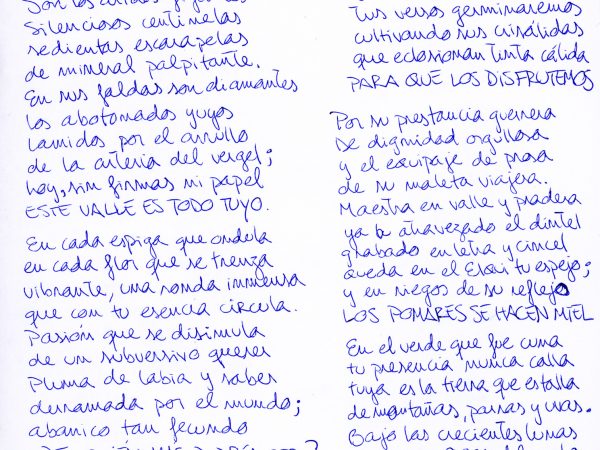 Silenciosos centinelas
sedientas escarapelas
de mineral palpitante.
En sus faldas son diamantes
los abotonados yuyos
lamidos por el arrullo
de la arteria del vergel;
hoy, sin firmas ni papel
ESTE VALLE ES TODO TUYO.
En cada espiga que ondula
en cada flor que se trenza
vibrante, una ronda inmensa
que con tu esencia circula.
Pasión que se disimula
de un subversivo querer
pluma de labia y saber
derramada por el mundo;
abanico tan fecundo
tus versos germinaremos
cultivando sus crisálidas
que eclosionan tinta cálida
PARA QUE LOS DISFRUTEMOS
Por su prestancia guerrera
de dignidad orgullosa
y el equipaje de prosa
de su maleta viajera.
Maestra en valle y pradera
ya ha atravezado el dintel
grabado en letra y cincel
queda en el Esqui tu espejo;
y en riegos de su reflejo
LOS POMARES SE HACEN MIEL
En el verde que fue cuna
tu presencia nunca calla
tuya es la tierra que estalla
de montañas, parras y uvas.
Bajo las crecientes lunas